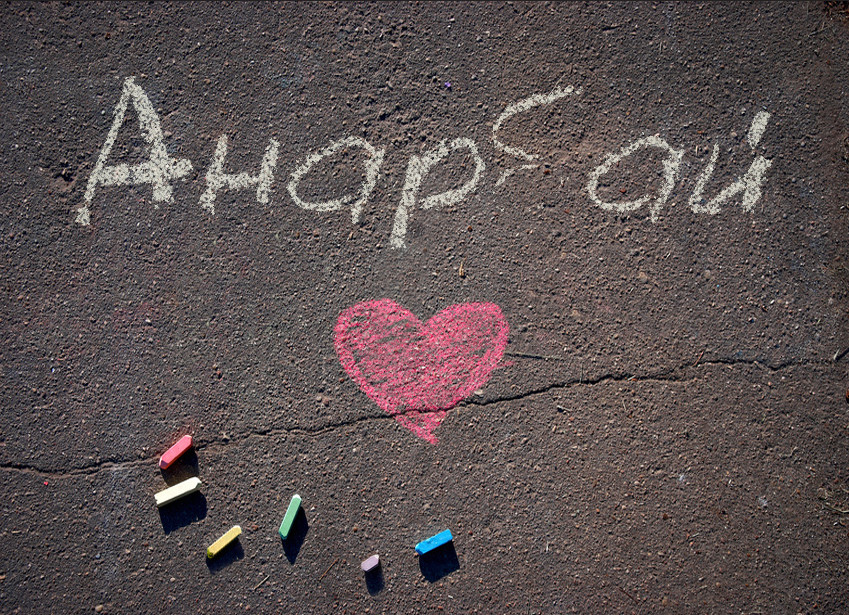 Анарбай